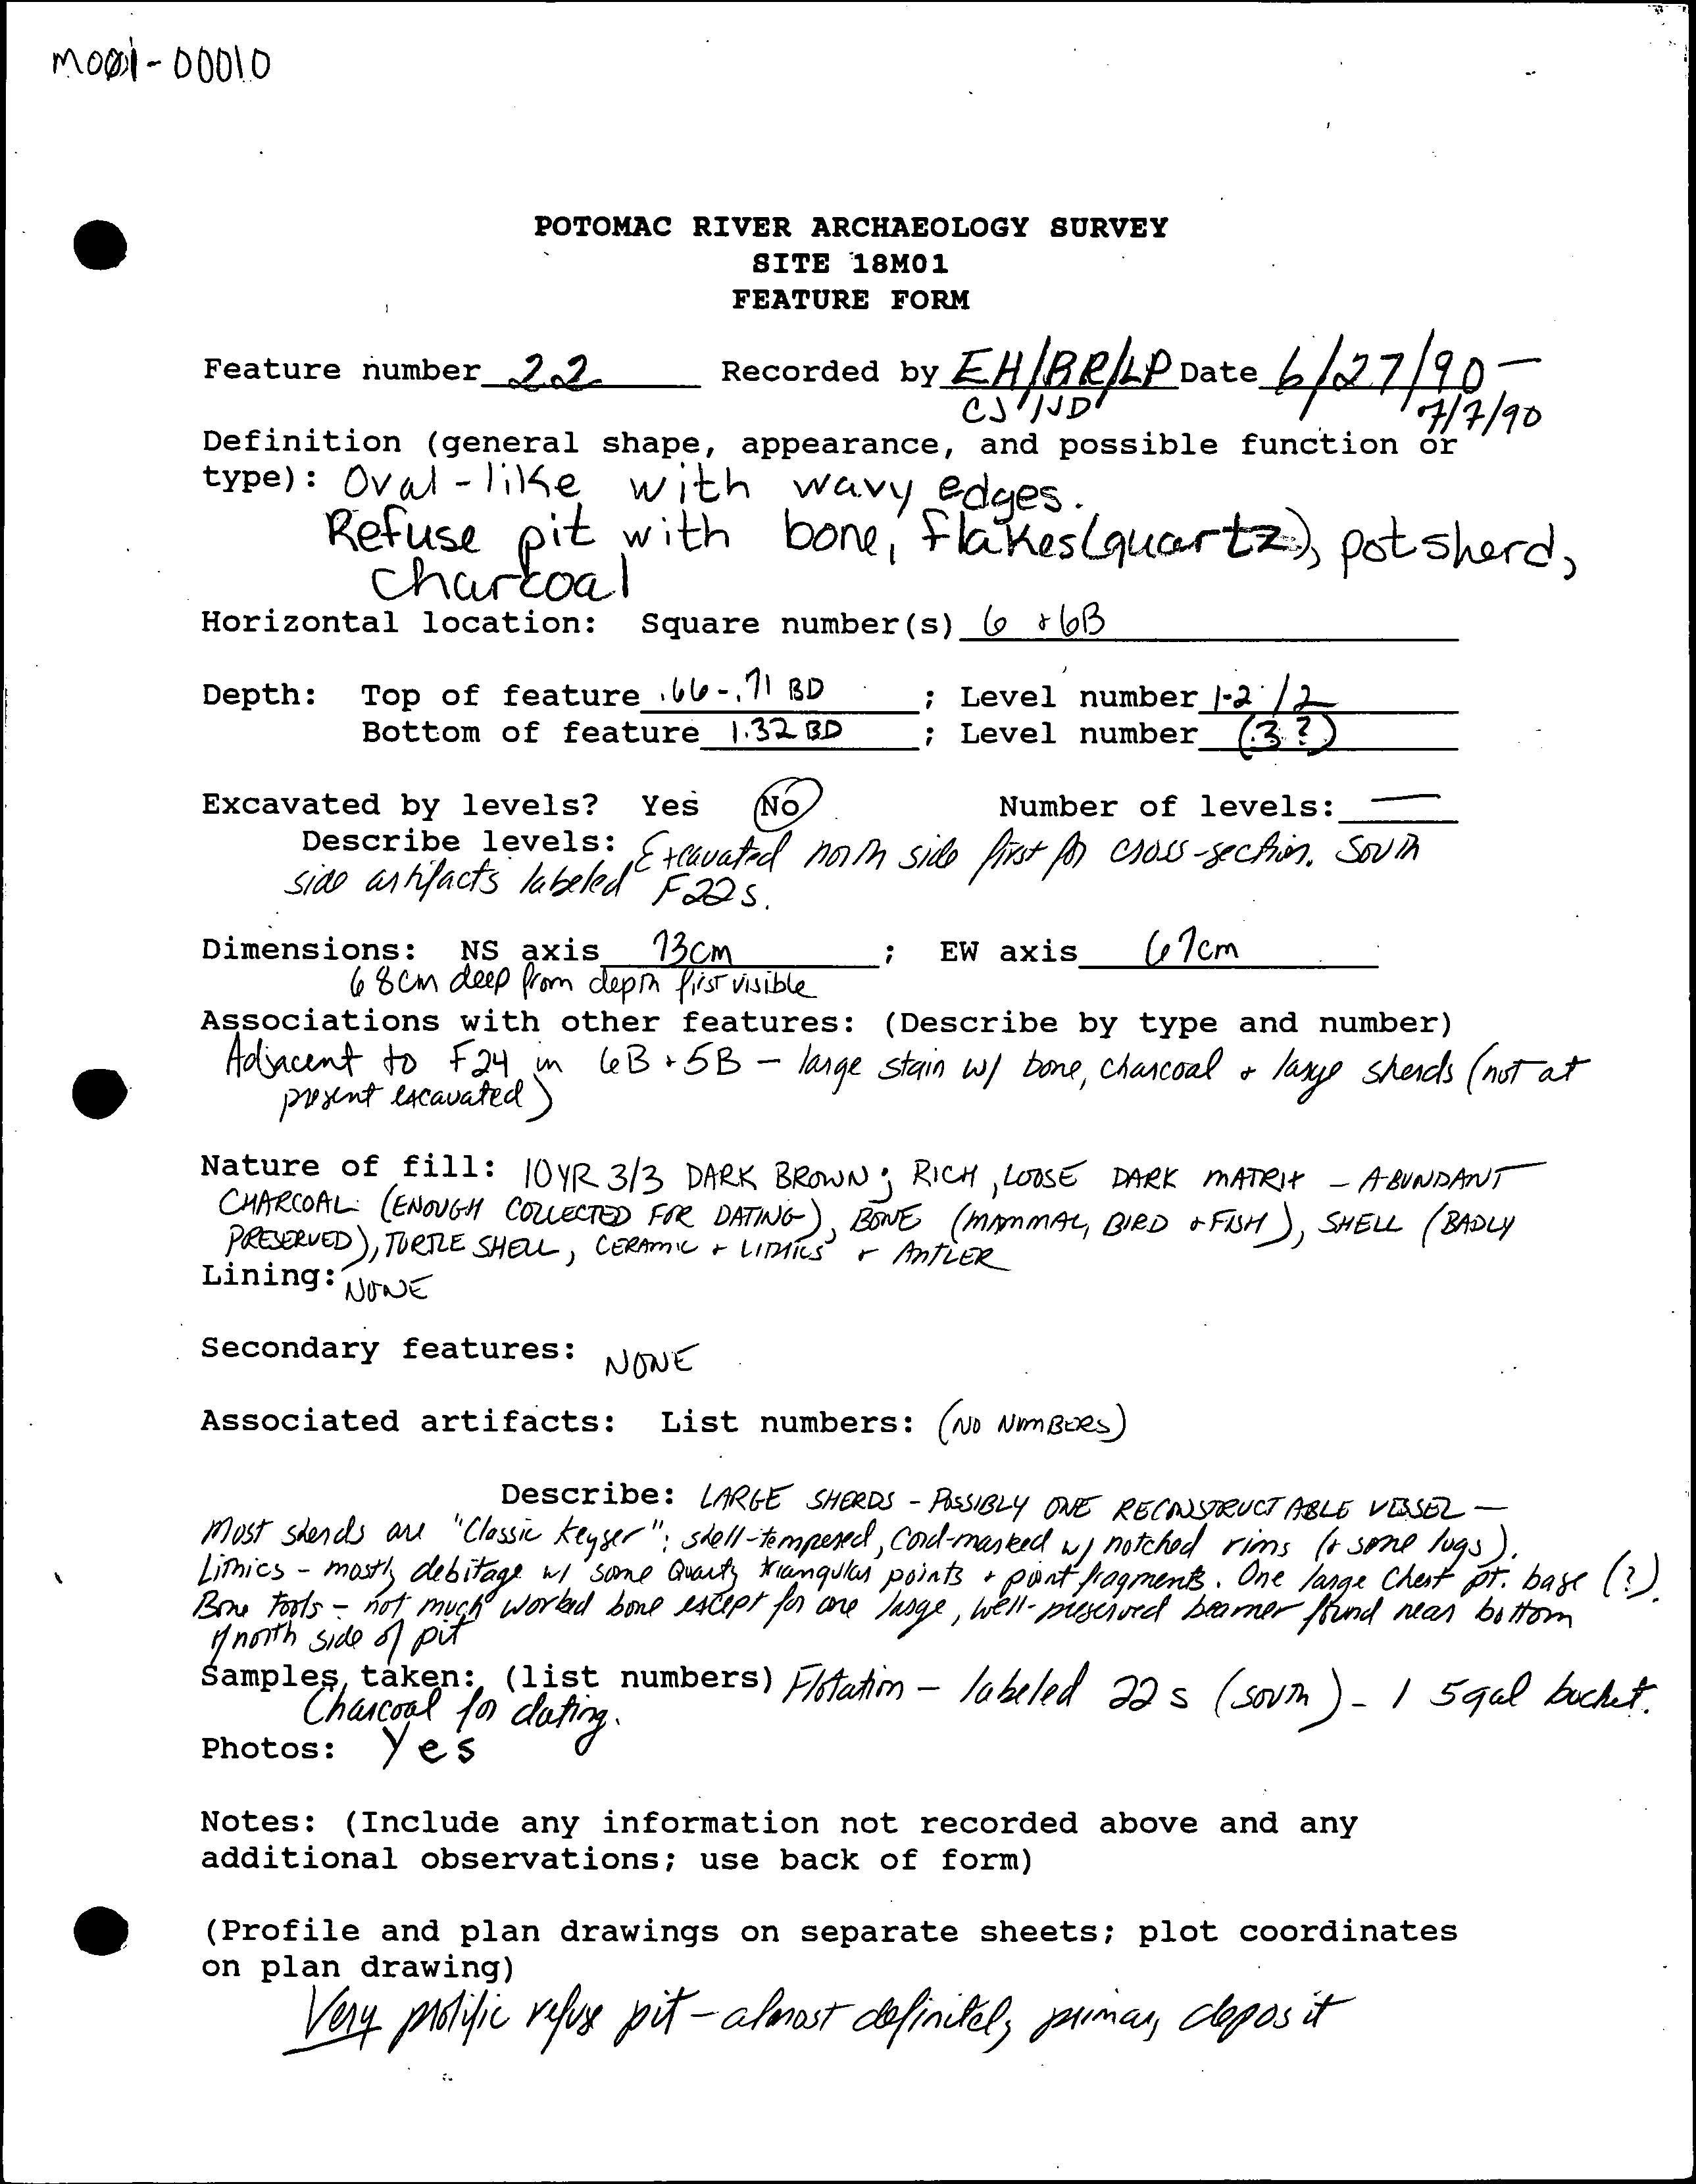 MO01-00010
POTOMAC RIVER ARCHAEOLOGY SURVEY
SITE 18MO1
FEATURE FORM
Feature number 22 Recorded by EH/BR/LP Date 6/27/90 -
CJ/JD 7/7/90
Definition (general shape, appearance, and possible function or
type): Oval-like with wavy edges.
Refuse pit with bone, flakes (quartz), potsherd,
charcoal
Horizontal location: Square number(s) 6 + 6B
Depth: Top of feature .66-.71 BD ; Level number 1-2 / 2
Bottom of feature 1.32 BD ; Level number (3?)
Excavated by levels? Yes No Number of levels: —
Describe levels: Excavated north side first for cross-section. South
side artifacts labeled F22s.
Dimensions: NS axis 73cm ; EW axis 67cm
68cm deep from depth first visible
Associations with other features: (Describe by type and number)
Adjacent to F24 in 6B + 5B - large stain w/ bone, charcoal + large sherds (not at
present excavated)
Nature of fill: 10YR 3/3 DARK BROWN; RICH, LOOSE DARK MATRIX - ABUNDANT
CHARCOAL (ENOUGH COLLECTED FOR DATING), BONE (MAMMAL, BIRD + FISH), SHELL (BADLY
PRESERVED), TURTLE SHELL, CERAMIC + LITHICS + ANTLER
Lining: NONE
Secondary features: NONE
Associated artifacts: List numbers: (NO NUMBERS)
Describe: LARGE SHERDS - POSSIBLY ONE RECONSTRUCTABLE VESSEL -
Most sherds are "Classic Keyser": shell-tempered, cord-marked w/ notched rims (+ some lugs).
Lithics - mostly debitage w/ some Quartz triangular points + point fragments. One large Chert pt. base (?).
Bone Tools - not much worked bone except for one large, well-preserved beamer found near bottom
of north side of pit
Samples taken: (list numbers) Flotation - labeled 22s (south) - 1 5gal bucket.
Charcoal for dating.
Photos: Yes
Notes: (Include any information not recorded above and any
additional observations; use back of form)
(Profile and plan drawings on separate sheets; plot coordinates
on plan drawing)
Very prolific refuse pit - almost definitely primary deposit